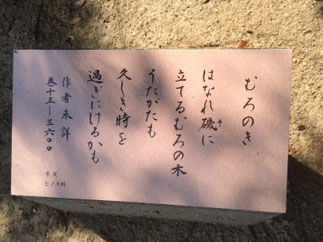 むろのき
はなれ磯に
そ
立てるむろの木
うたがたも
久しき時を
過ぎにけるかも
作者未詳
巻十五―三六〇〇
ネズ
ヒノキ科